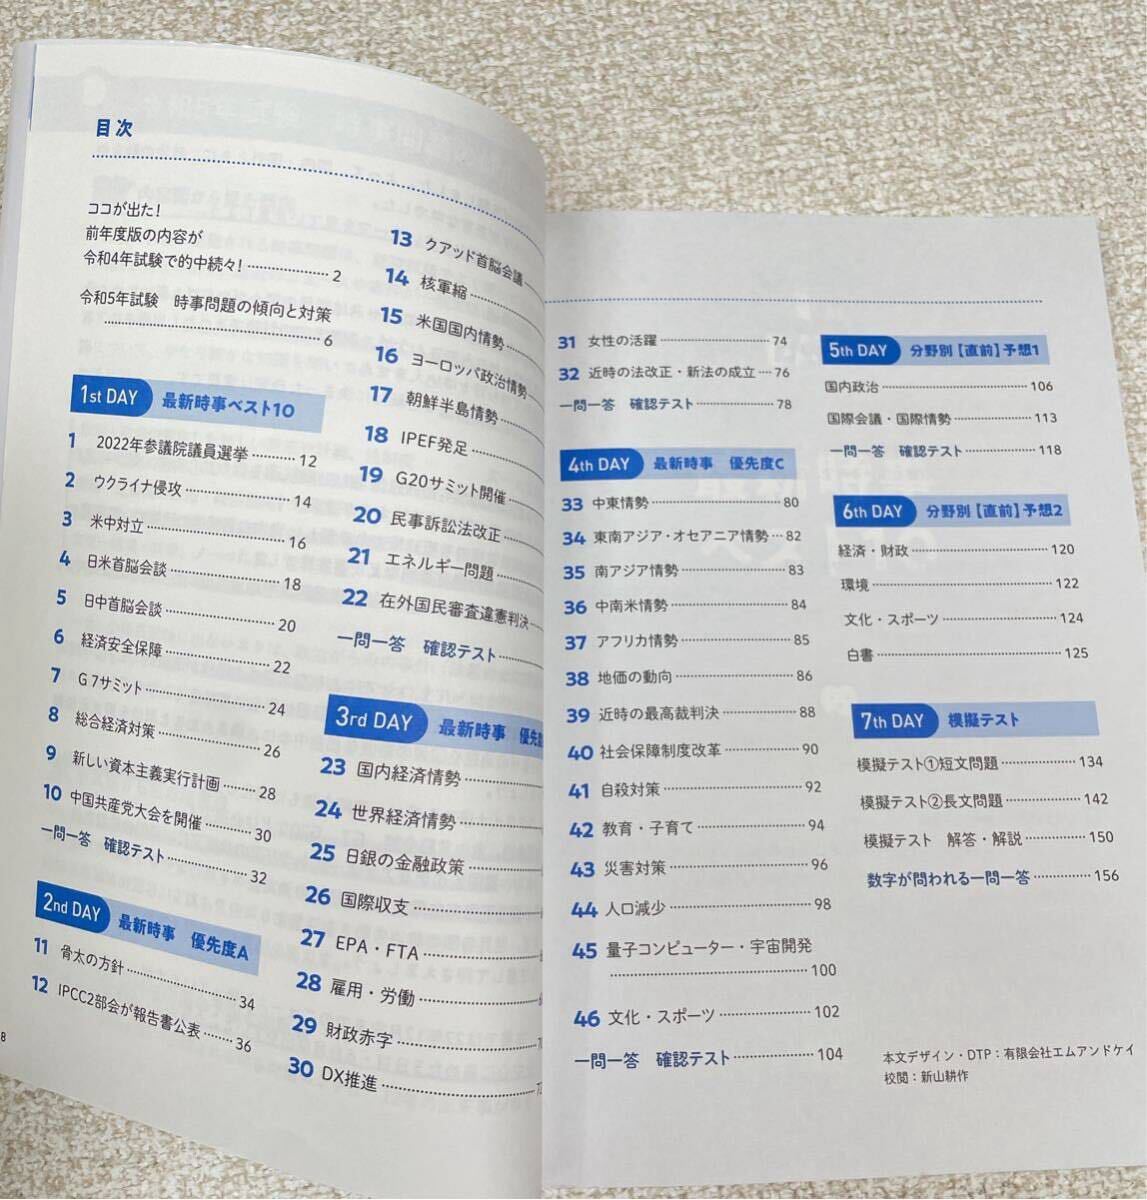 目次
ココが出た!
前年度版の内容が
令和4年試験で的中続々! 2
令和5年試験 時事問題の傾向と対策
6
1st DAY 最新時事ベスト10
1 2022年参議院議員選挙 12
2 ウクライナ侵攻 14
3 米中対立 16
4 日米首脳会談 18
5 日中首脳会談 20
6 経済安全保障 22
7 G7サミット 24
8 総合経済対策 26
9 新しい資本主義実行計画 28
10 中国共産党大会を開催 30
一問一答 確認テスト 32
2nd DAY 最新時事 優先度A
11 骨太の方針 34
12 IPCC2部会が報告書公表 36
8
13 クアッド首脳会議
14 核軍縮
15 米国国内情勢
16 ヨーロッパ政治情勢
17 朝鮮半島情勢
18 IPEF発足
19 G20サミット開催
20 民事訴訟法改正
21 エネルギー問題
22 在外国民審査違憲判決
一問一答 確認テスト
3rd DAY 最新時事 優先度
23 国内経済情勢
24 世界経済情勢
25 日銀の金融政策
26 国際収支
27 EPA・FTA
28 雇用・労働
29 財政赤字
30 DX推進
31 女性の活躍 74
32 近時の法改正・新法の成立 76
一問一答 確認テスト 78
4th DAY 最新時事 優先度C
33 中東情勢 80
34 東南アジア・オセアニア情勢 82
35 南アジア情勢 83
36 中南米情勢 84
37 アフリカ情勢 85
38 地価の動向 86
39 近時の最高裁判決 88
40 社会保障制度改革 90
41 自殺対策 92
42 教育・子育て 94
43 災害対策 96
44 人口減少 98
45 量子コンピューター・宇宙開発
100
46 文化・スポーツ 102
一問一答 確認テスト 104
5th DAY 分野別【直前】予想1
国内政治 106
国際会議・国際情勢 113
一問一答 確認テスト 118
6th DAY 分野別【直前】予想2
経済・財政 120
環境 122
文化・スポーツ 124
白書 125
7th DAY 模擬テスト
模擬テスト①短文問題 134
模擬テスト②長文問題 142
模擬テスト 解答・解説 150
数字が問われる一問一答 156
本文デザイン・DTP：有限会社エムアンドケイ
校閲：新山耕作